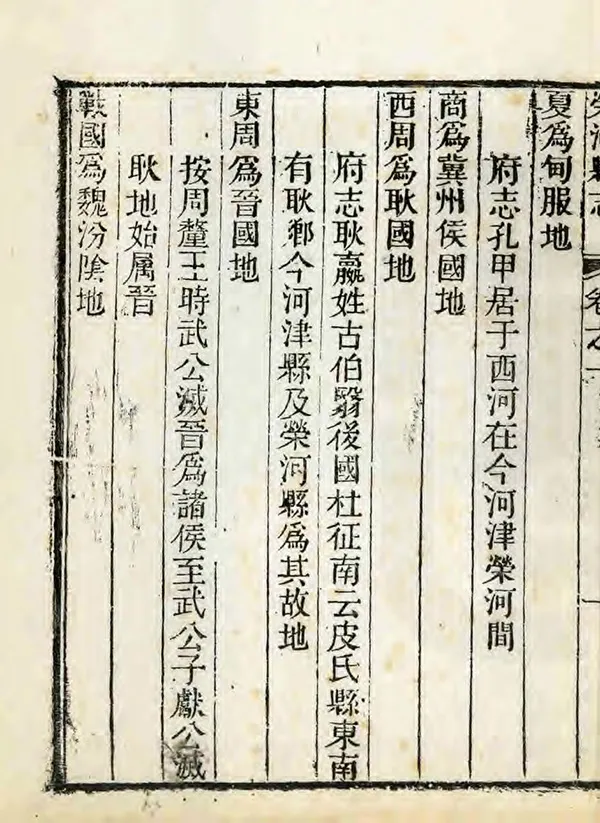 榮河縣志 卷之一
夏爲甸服地
府志孔甲居于西河在今河津榮河間
商爲冀州侯國地
西周爲耿國地
府志耿嬴姓古伯翳後國杜征南云皮氏縣東南
有耿鄉今河津縣及榮河縣爲其故地
東周爲晉國地
按周釐王時武公滅晉爲諸侯至武公子獻公滅
耿地始属晉
戰國爲魏汾陰地